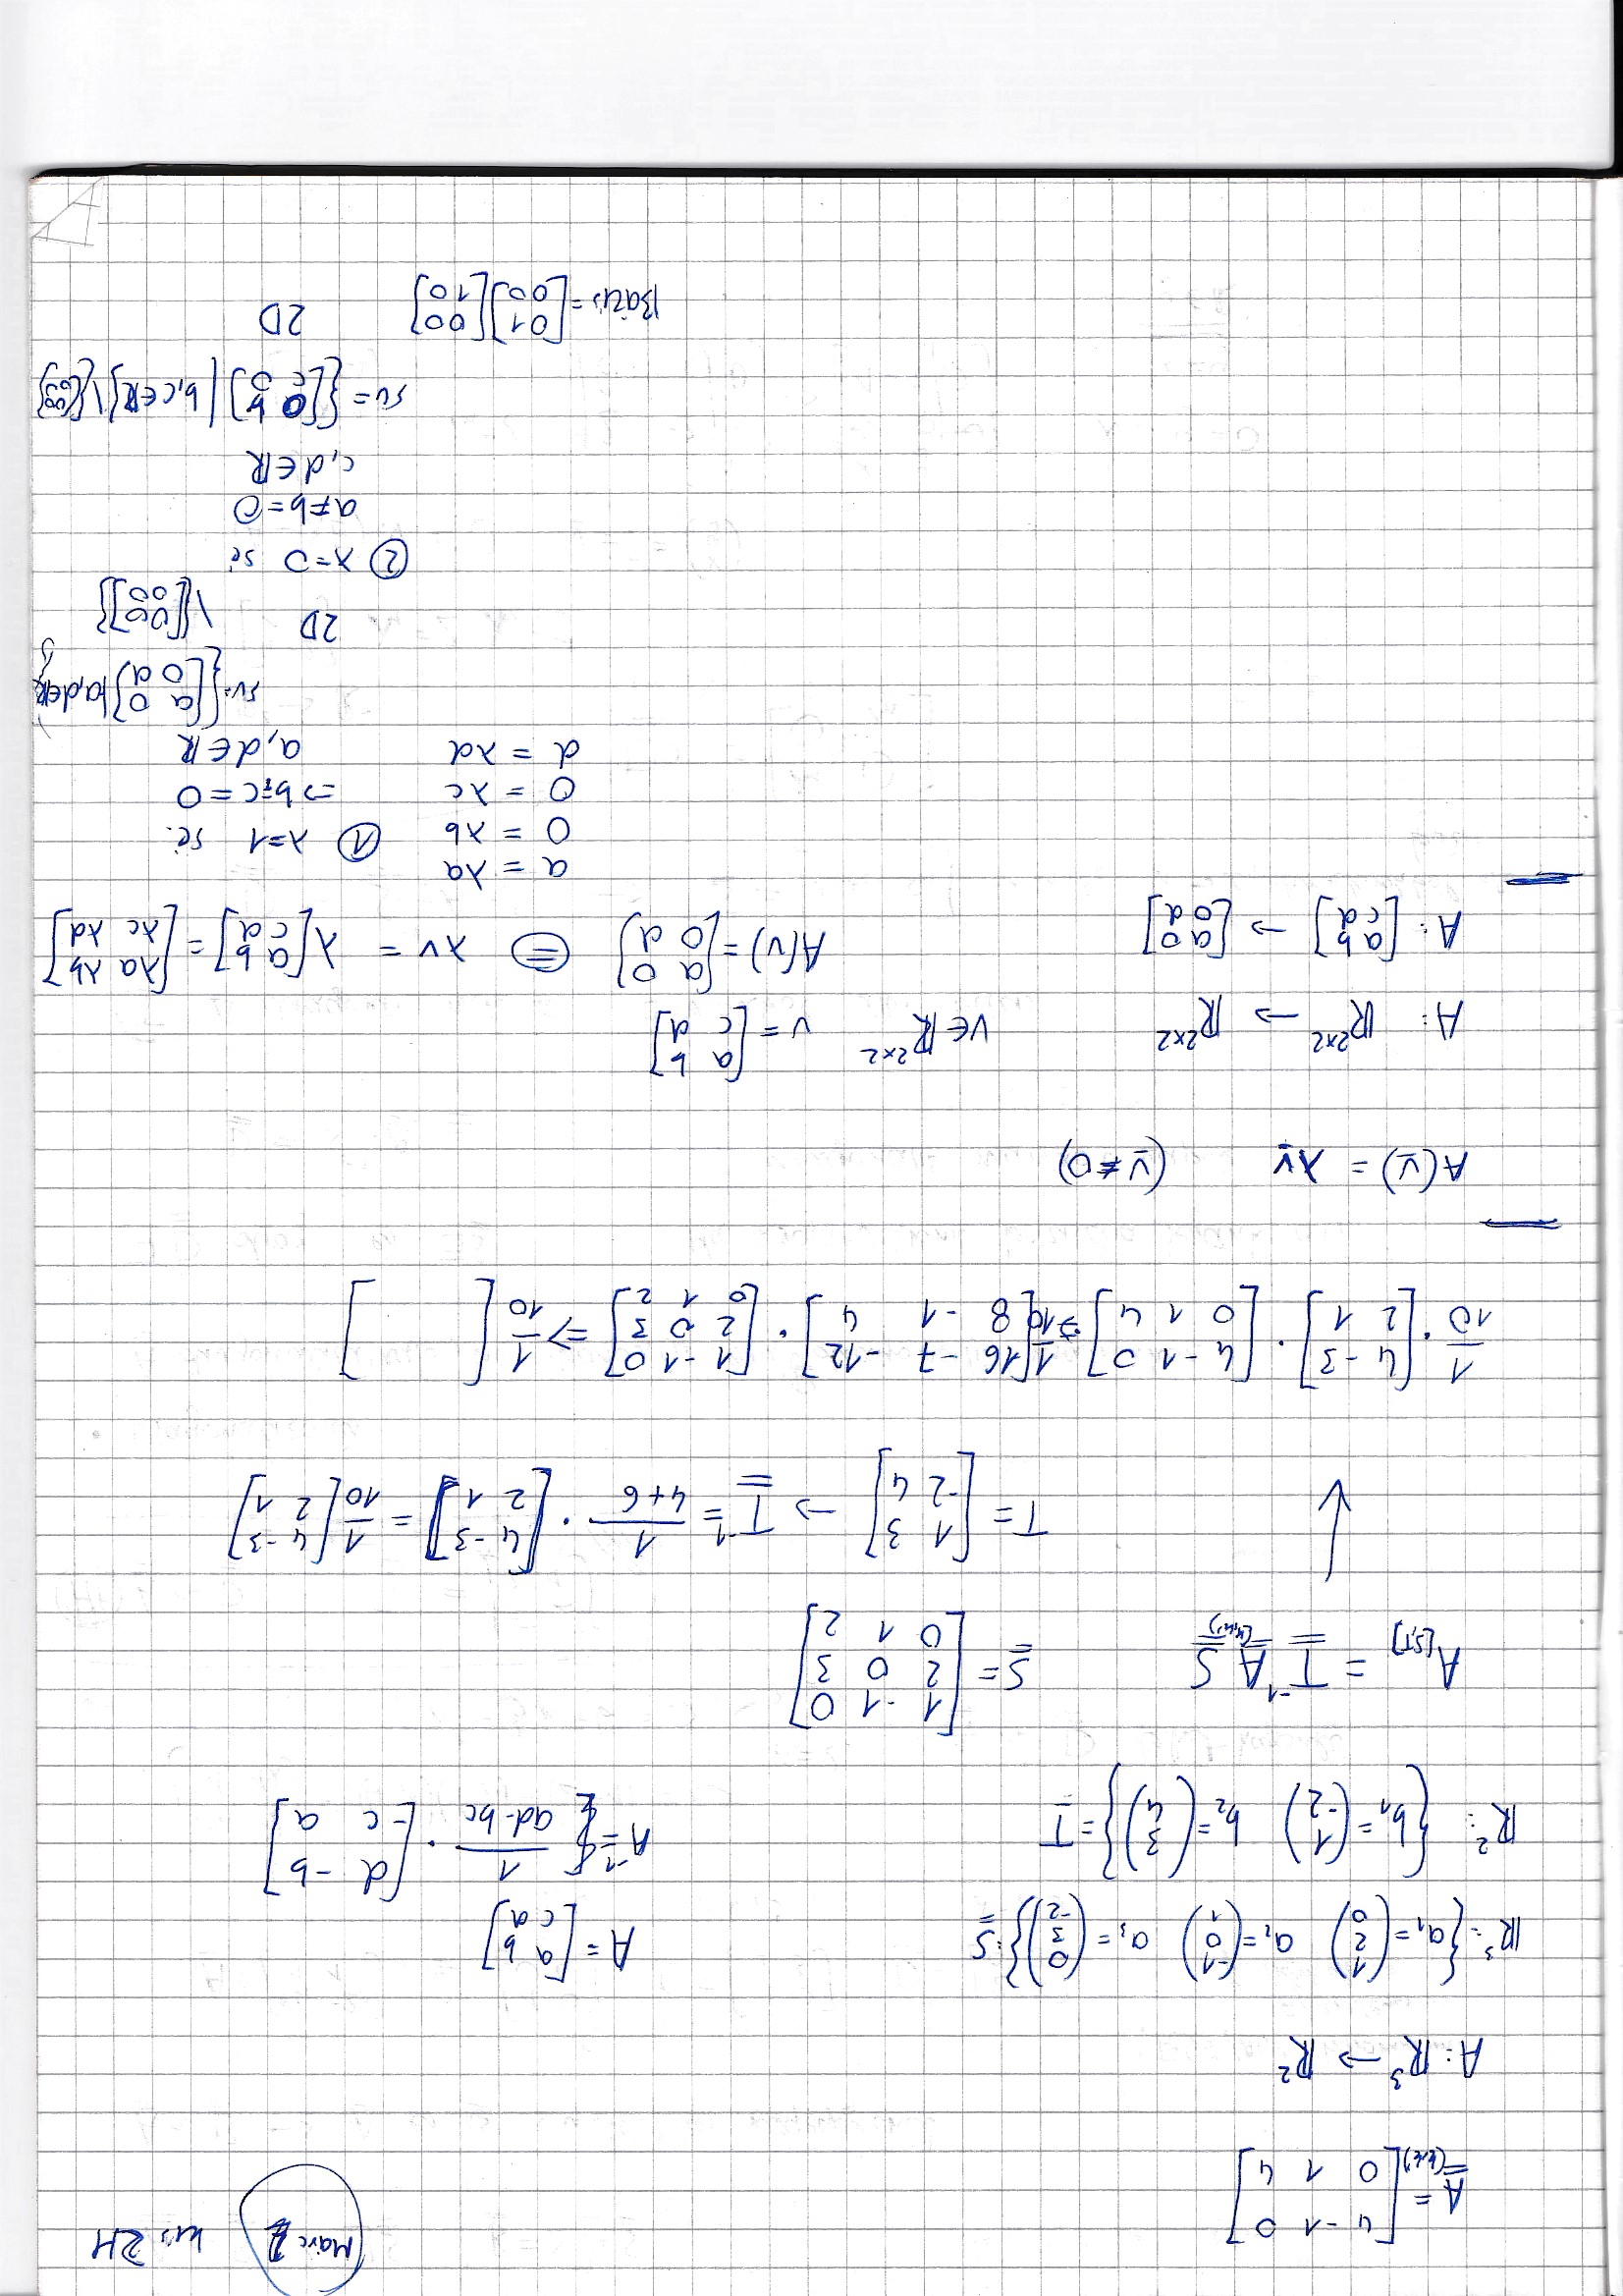 Márc 2 kis ZH
A(k,k') = [4 -1 0; 0 1 4]
A: ℝ³ → ℝ²
ℝ³: {a₁ = (1 2 0) a₂ = (-1 0 1) a₃ = (0 3 -2)} : S
A = [a b; c d]
ℝ²: {b₁ = (1 -2) b₂ = (3 4)} = T
A⁻¹ = 1/(ad-bc) · [d -b; -c a]
A[S,T] = T⁻¹ A(k,k') S
S = [1 -1 0; 2 0 3; 0 1 2]
T = [1 3; -2 4] → T⁻¹ = 1/(4+6) · [4 -3; 2 1] = 1/10 [4 -3; 2 1]
1/10 · [4 -3; 2 1] · [4 -1 0; 0 1 4] ⇒ 1/10 [16 -7 -12; 8 -1 4] · [1 -1 0; 2 0 3; 0 1 2] ⇒ 1/10 [ ]
A(v) = λv (v ≠ 0)
A: ℝ²ˣ² → ℝ²ˣ² v∈ℝ²ˣ² v = [a b; c d]
A: [a b; c d] → [a 0; 0 d]
A(v) = [a 0; 0 d] = λv = λ[a b; c d] = [λa λb; λc λd]
a = λa
0 = λb
0 = λc
d = λd
① λ=1 sé.
⇒ b=c = 0
a,d∈ℝ
sv = {[a 0; 0 d] | a,d∈ℝ}
2D \{[0 0; 0 0]}
② λ=0 sé
a=b=0
c,d∈ℝ
sv = {[0 b; c 0] | b,c∈ℝ}\{[0 0; 0 0]}
Bázis = [0 1; 0 0] [0 0; 1 0] 2D